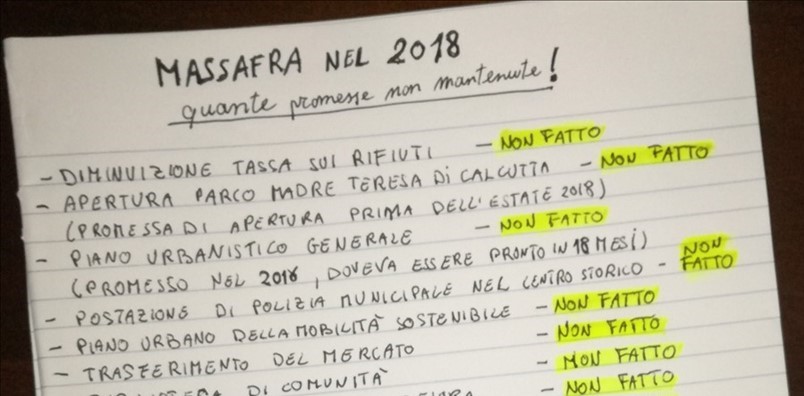 MASSAFRA NEL 2018
quante promesse non mantenute!
- DIMINUIZIONE TASSA SUI RIFIUTI - NON FATTO
- APERTURA PARCO MADRE TERESA DI CALCUTTA - NON FATTO
(PROMESSA DI APERTURA PRIMA DELL'ESTATE 2018)
- PIANO URBANISTICO GENERALE - NON FATTO
(PROMESSO NEL 2016, DOVEVA ESSERE PRONTO IN 18 MESI)
- POSTAZIONE DI POLIZIA MUNICIPALE NEL CENTRO STORICO - NON FATTO
- PIANO URBANO DELLA MOBILITÀ SOSTENIBILE - NON FATTO
- TRASFERIMENTO DEL MERCATO - NON FATTO
DI COMUNITÀ - NON FATTO
- NON FATTO